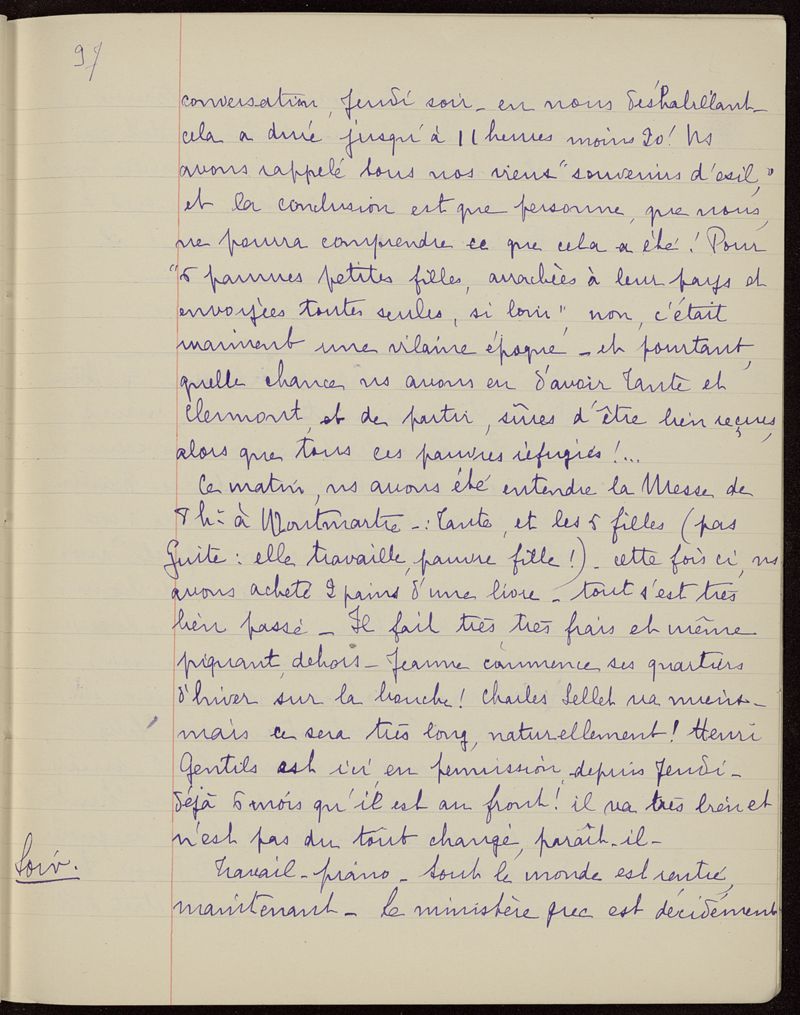 97
conversation, Jeudi soir - en nous déshabillant -
cela a duré jusqu'à 11 heures moins 20! Ns
avons rappelé tous nos vieux "souvenirs d'exil,"
et la conclusion est que personne, que nous,
ne pourra comprendre ce que cela a été! Pour
"5 pauvres petites filles, arrachées à leur pays et
envoyées toutes seules, si loin", non, c'était
vraiment une vilaine époque - et pourtant,
quelle chance ns avons eu d'avoir Tante et
Clermont, et de partir, sûres d'être bien reçues,
alors que tous ces pauvres réfugiés!...
Ce matin, ns avons été entendre la Messe de
8 h. à Montmartre -: Tante, et les 5 filles (pas
Guite: elle travaille, pauvre fille!) - cette fois ci, ns
avons acheté 2 pains d'une livre - tout s'est très
bien passé - Il fait très très frais et même
piquant, dehors - Jeanne commence ses quartiers
d'hiver sur la bouche! Charles Sellet va mieux -
mais ce sera très long, naturellement! Henri
Gentils est ici en permission, depuis Jeudi -
déjà 6 mois qu'il est au front! il va très bien et
n'est pas du tout changé, paraît-il -
Soir.
Travail - piano - tout le monde est rentré,
maintenant - Le ministère grec est décidément